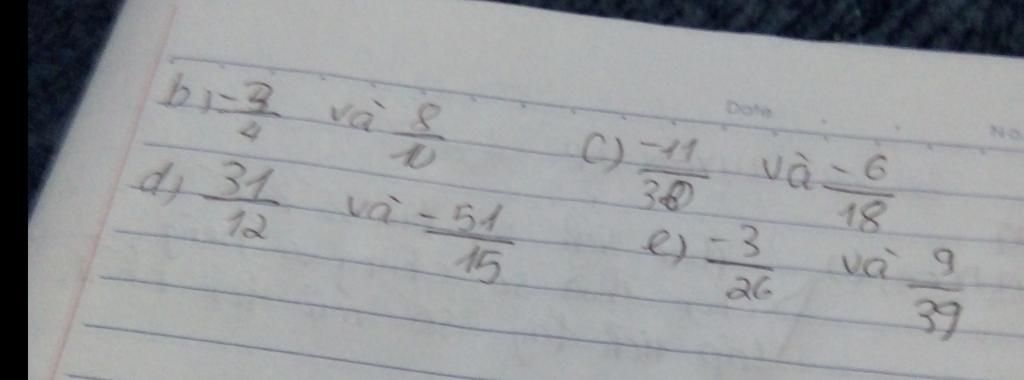 Date
No.
b, -3/4 và 8/10 c) -11/30 và -6/18
d, 31/12 và -51/15 e) -3/26 và 9/39